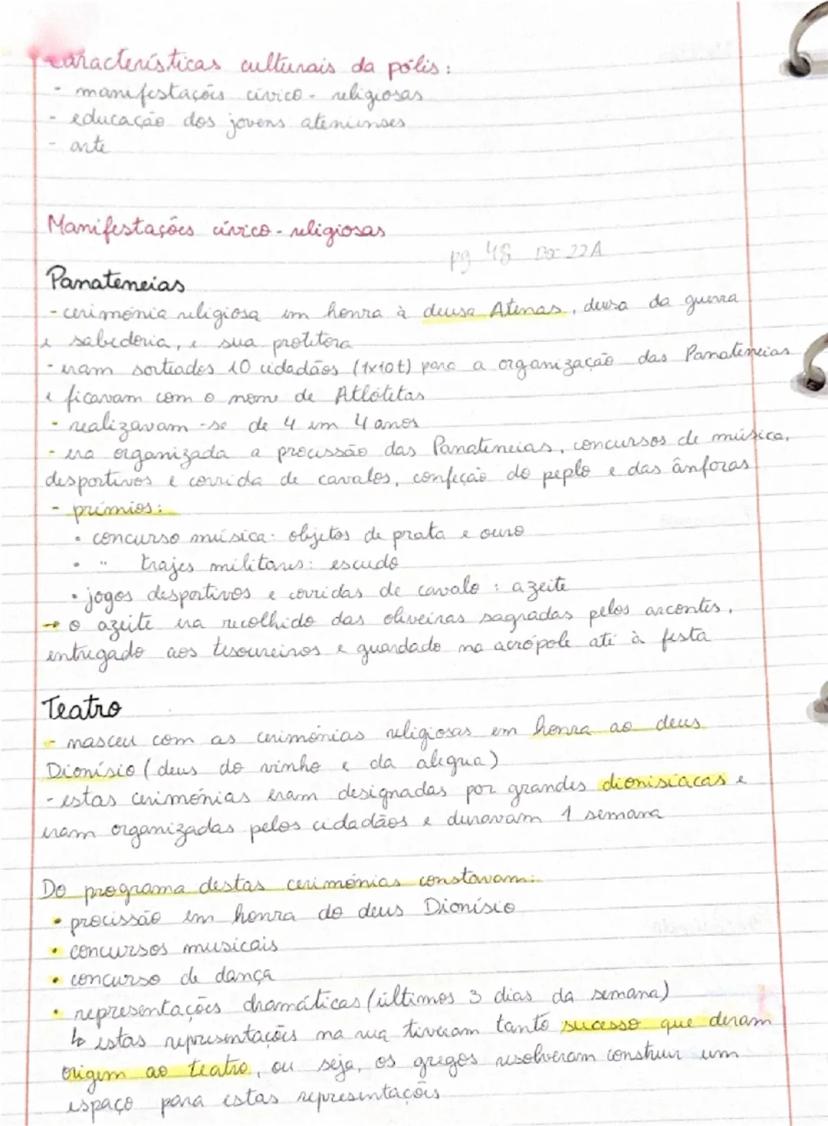 Características culturais da pólis:
- manifestações cívico-religiosas
- educação dos jovens atenienses
- arte
Manifestações cívico-religiosas
pg 48 Doc 22A
Panateneias
- cerimónia religiosa em honra à deusa Atenas, deusa da guerra
e sabedoria, e sua protetora
- eram sorteados 10 cidadãos (1x10t) para a organização das Panateneias
e ficavam com o nome de Atlótetas
- realizavam-se de 4 em 4 anos
- era organizada a procissão das Panateneias, concursos de música,
desportivos e corrida de cavalos, confeção do peplo e das ânforas
- prémios:
• concurso música: objetos de prata e ouro
• " trajes militares: escudo
• jogos desportivos e corridas de cavalo: azeite
→ o azeite era recolhido das oliveiras sagradas pelos arcontes,
entregado aos tesoureiros e guardado na acrópole até à festa
Teatro
- nasceu com as cerimónias religiosas em honra ao deus
Dionísio (deus do vinho e da alegria)
- estas cerimónias eram designadas por grandes dionisíacas e
eram organizadas pelos cidadãos e duravam 1 semana
Do programa destas cerimónias constavam:
• procissão em honra do deus Dionísio
• concursos musicais
• concurso de dança
• representações dramáticas (últimos 3 dias da semana)
↳ estas representações na rua tiveram tanto sucesso que deram
origem ao teatro, ou seja, os gregos resolveram construir um
espaço para estas representações